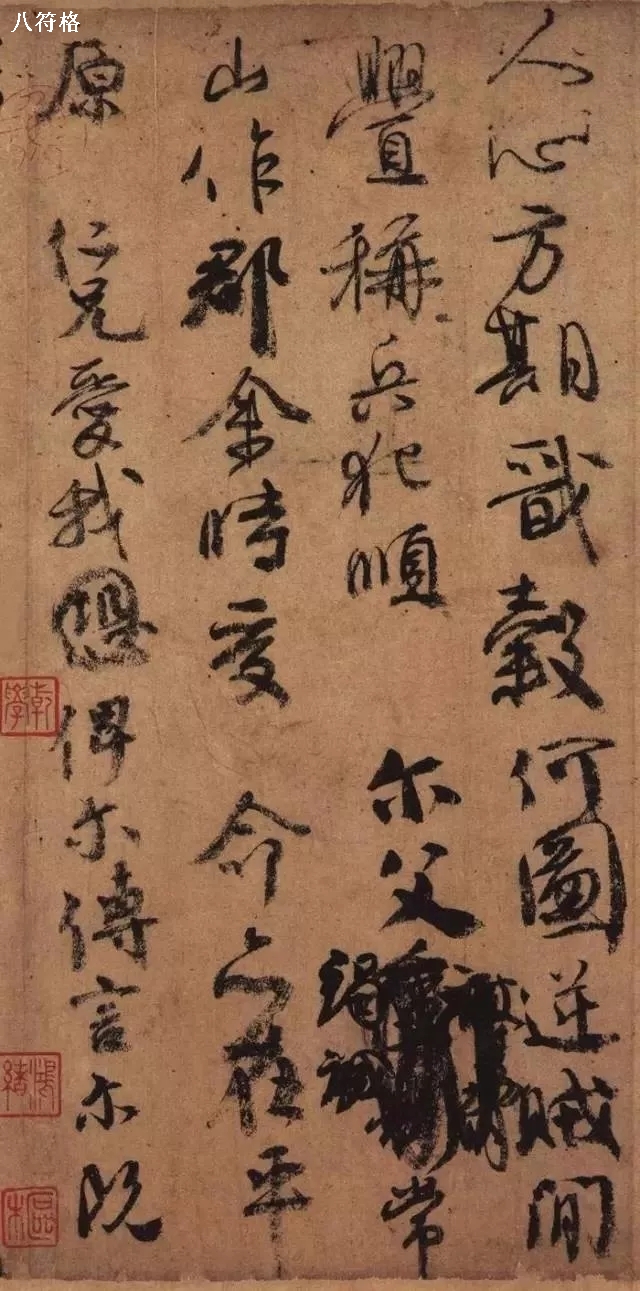 八符格
人心方期戩穀何圖逆賊間
釁稱兵犯順 尔父竭誠常
山作郡余時受 命亦在平
原 仁兄愛我俾尔傳言尔既